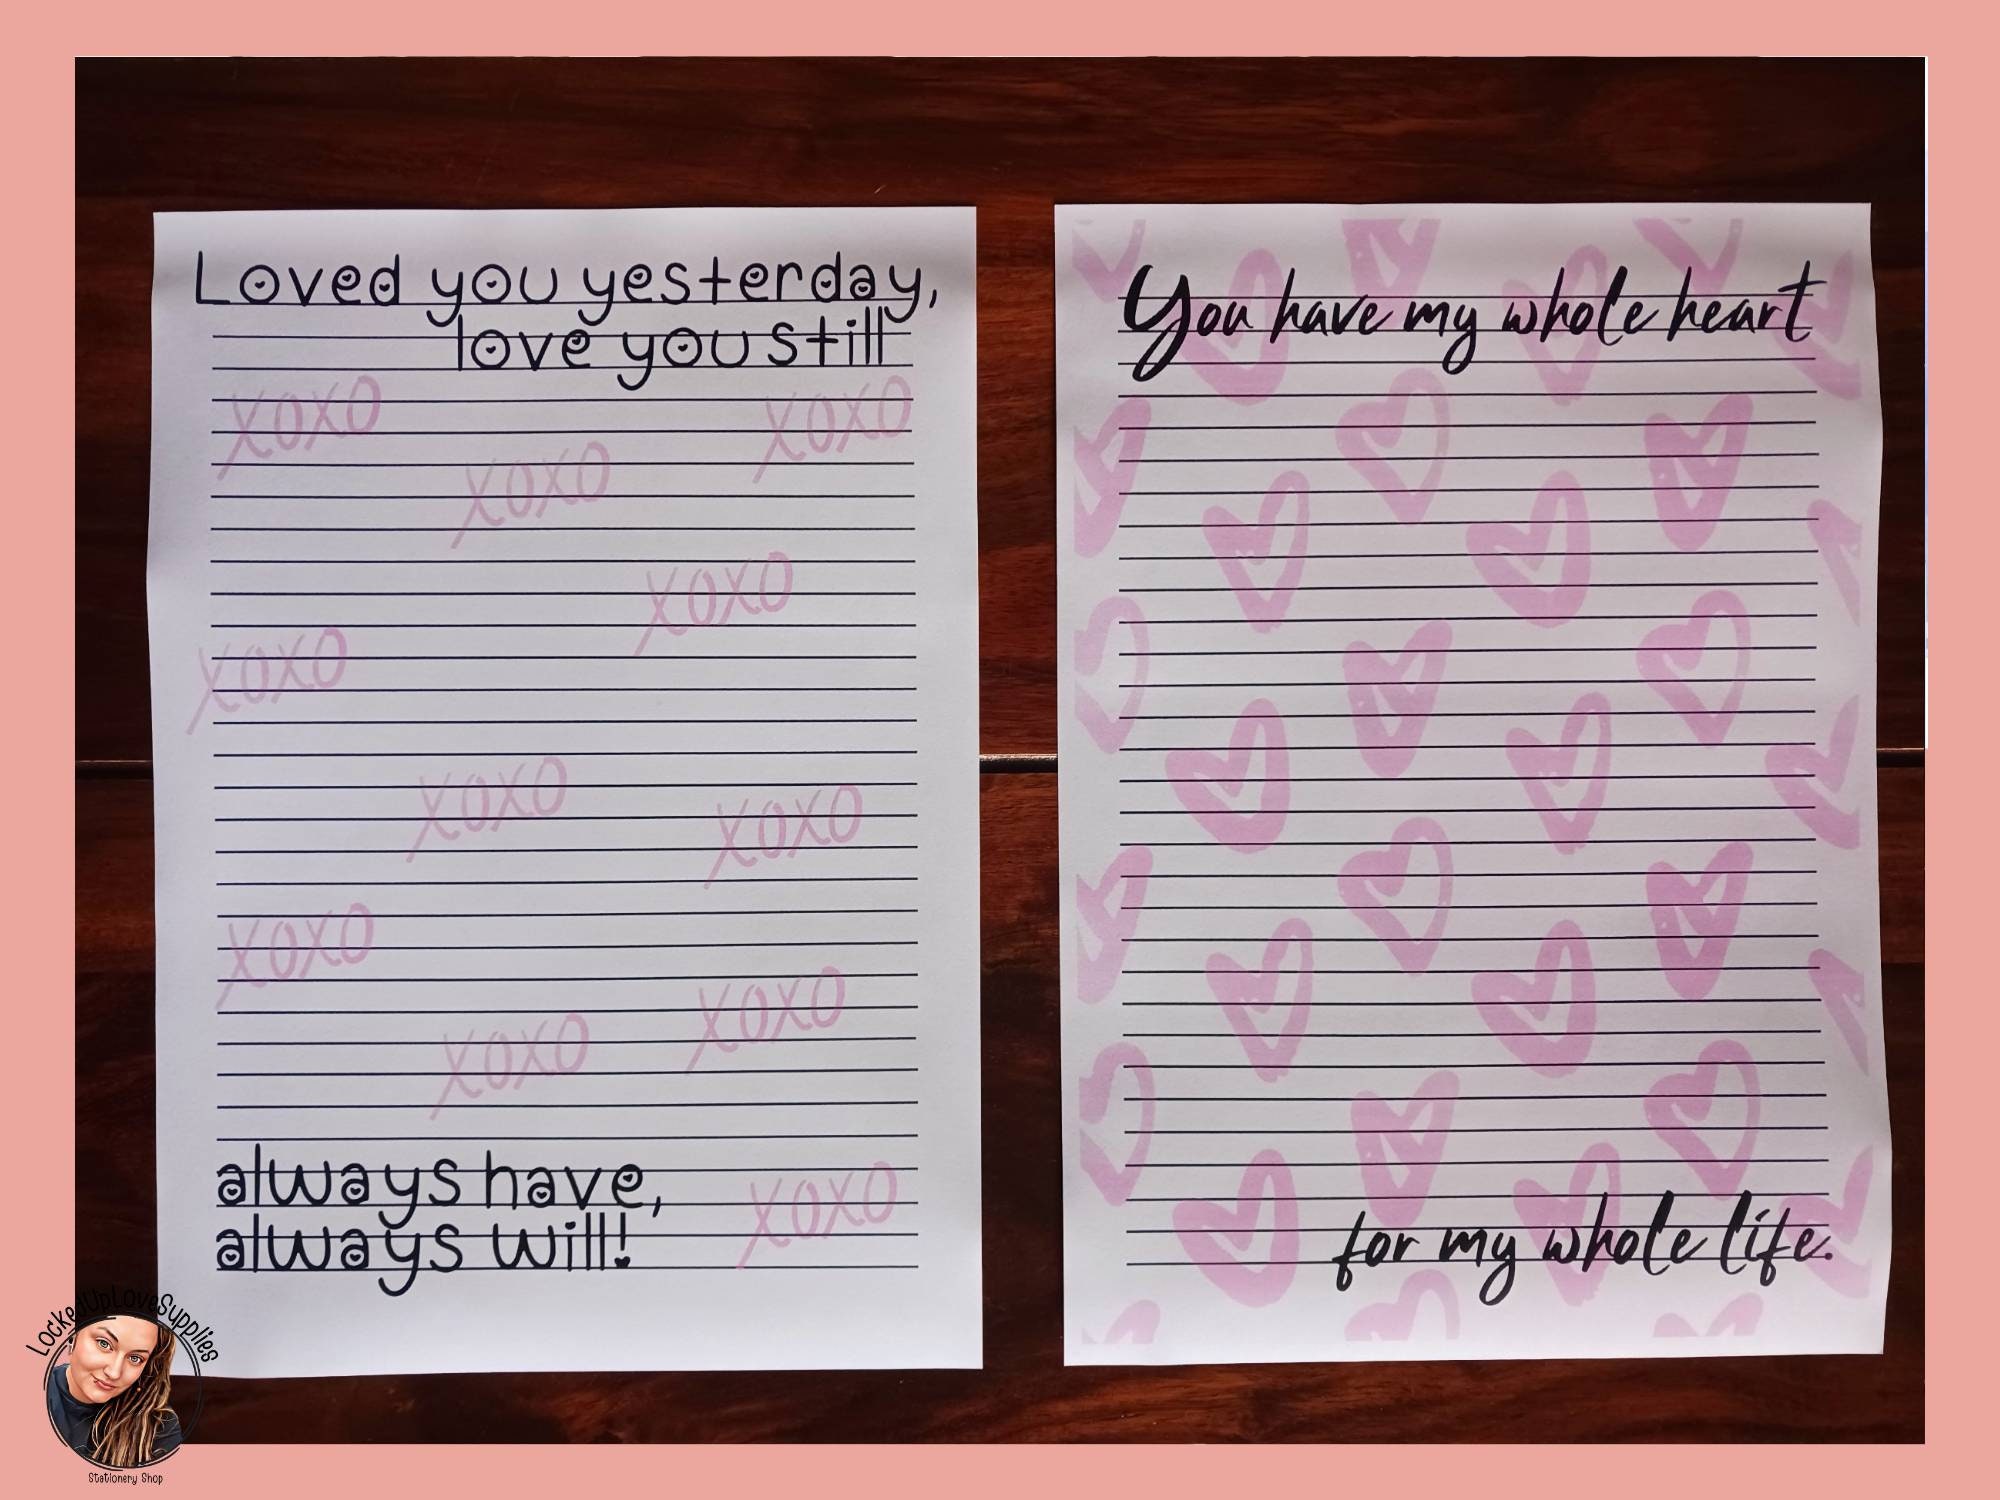 Loved you yesterday,
love you still
xoxo
xoxo
xoxo
xoxo
xoxo
xoxo
xoxo
xoxo
xoxo
xoxo
always have,
always will!
xoxo
You have my whole heart
for my whole life.
LockedUpLoveSupplies
Stationery Shop